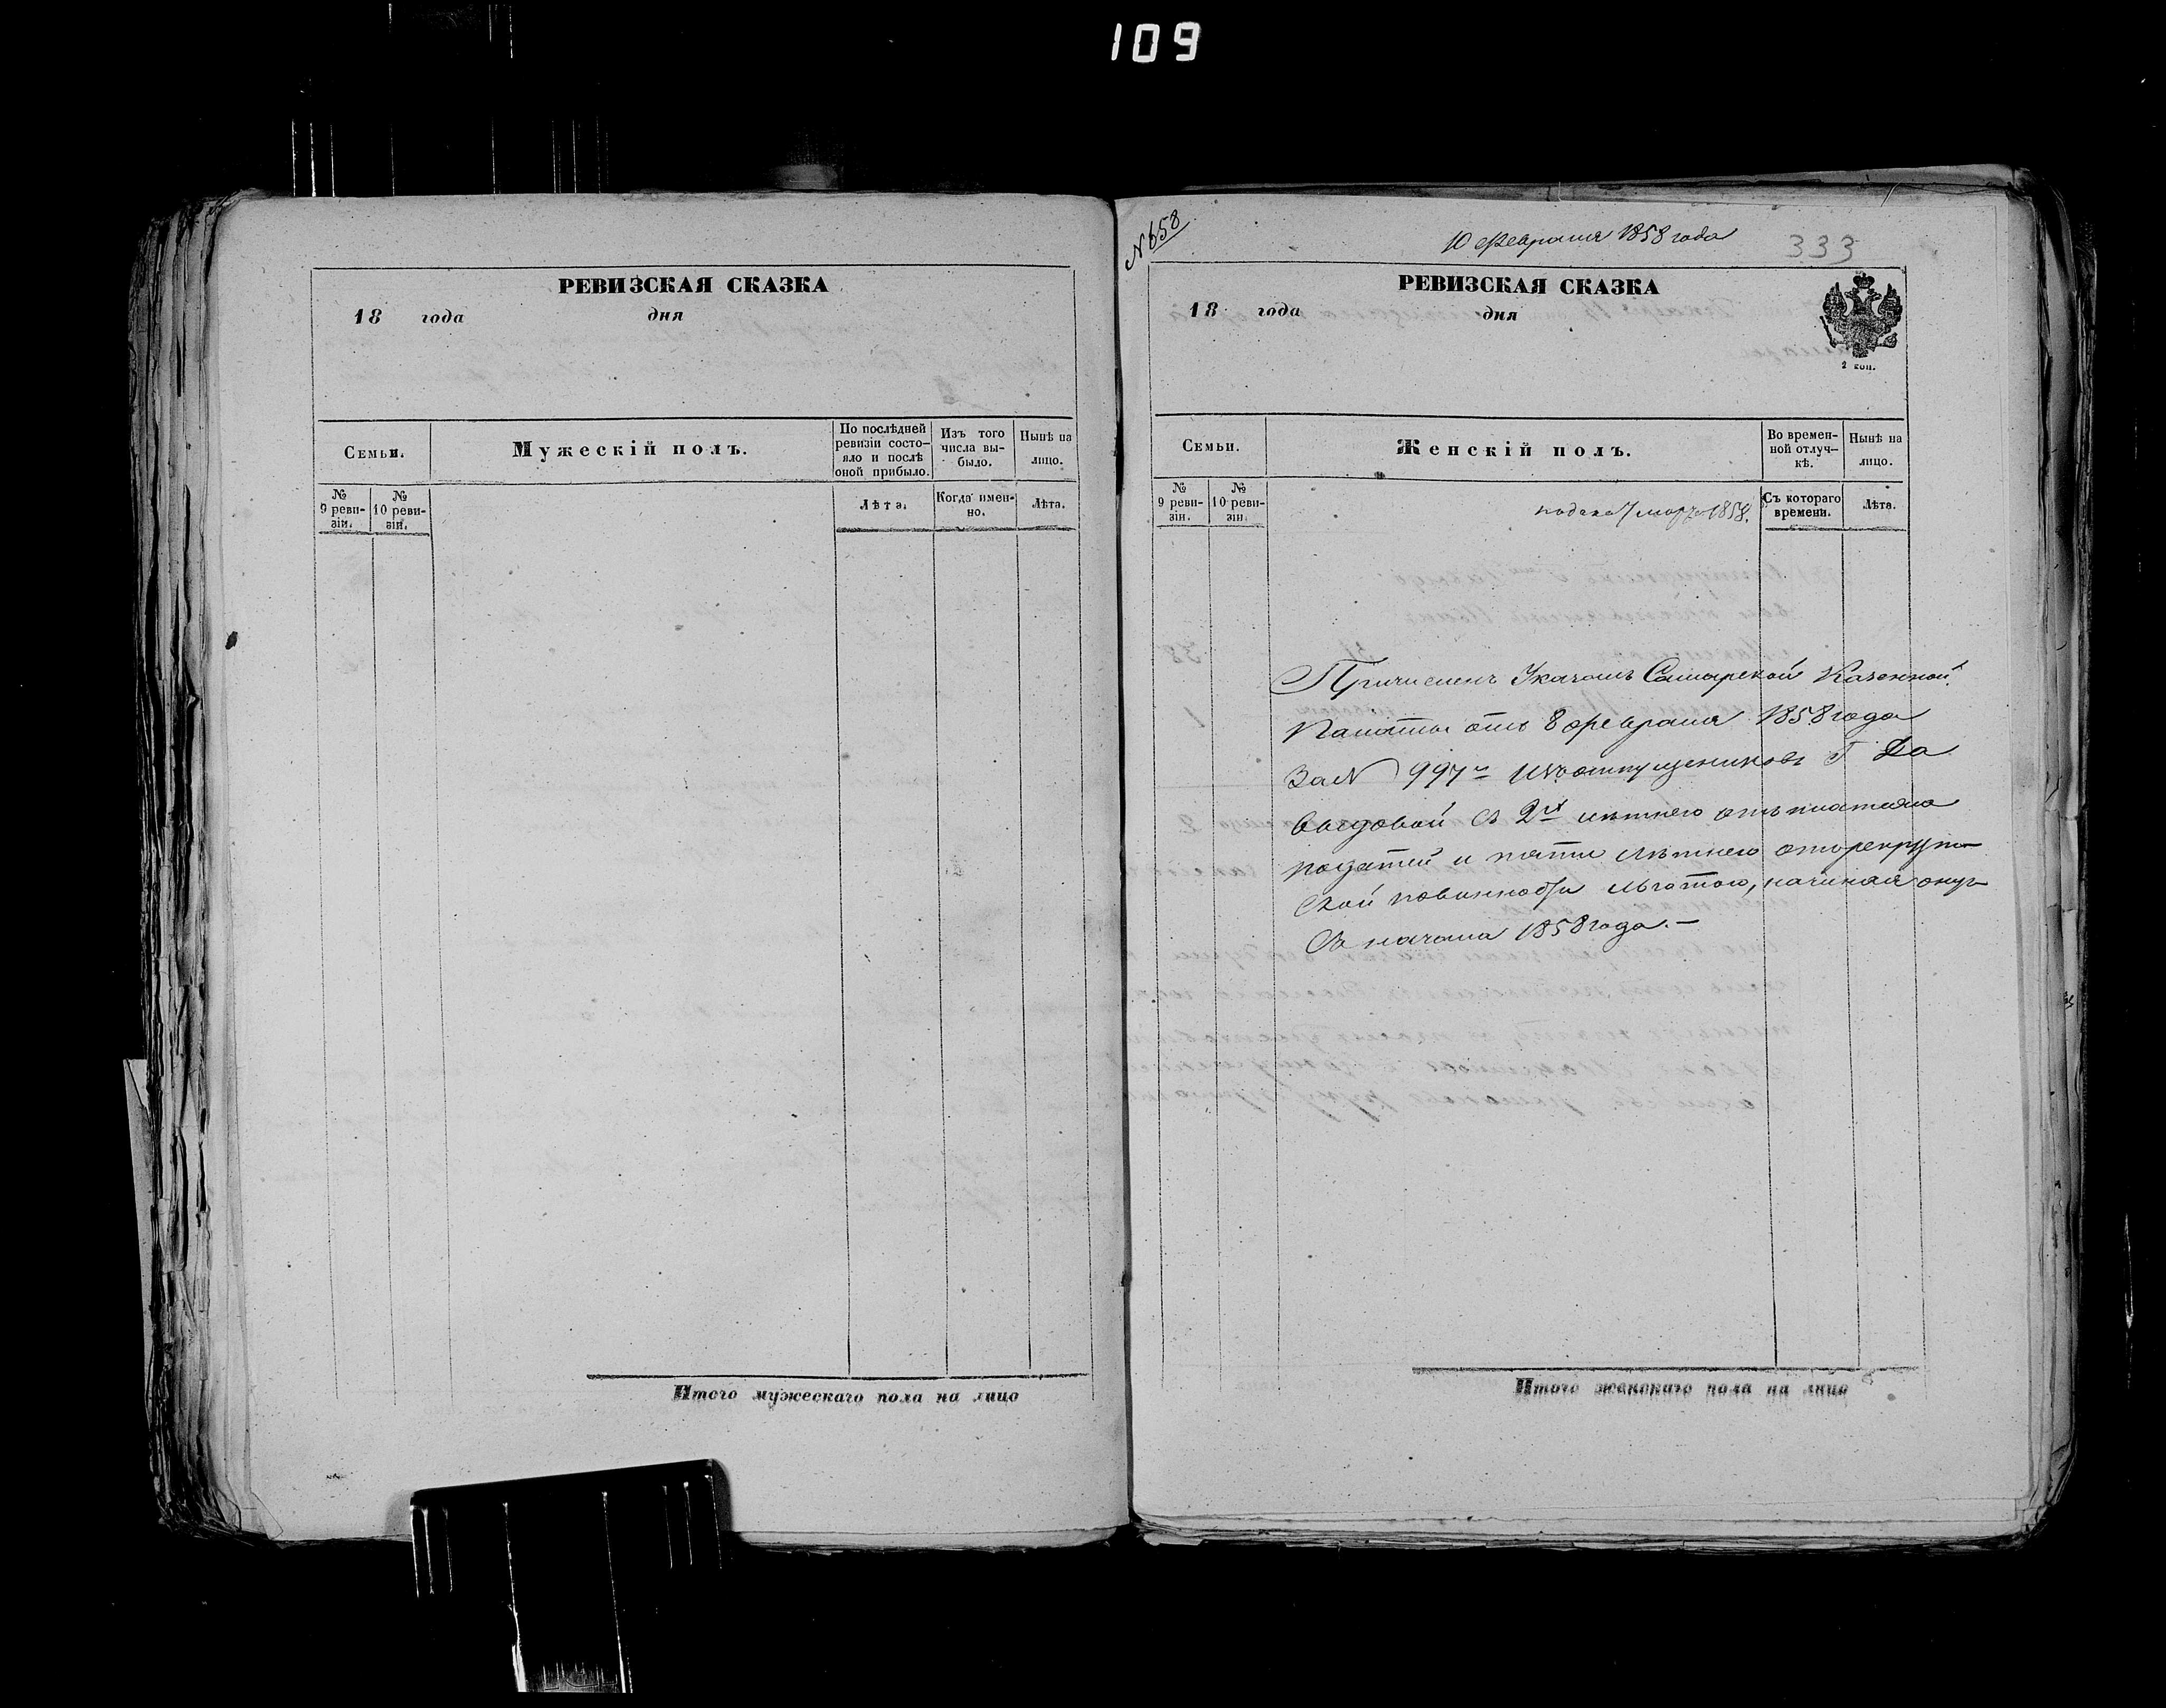 109
РЕВИЗСКАЯ СКАЗКА
18 года дня
Семьи.
Мужескій полъ.
По послѣдней ревизіи состояло и послѣ оной прибыло.
Изъ того числа выбыло.
Нынѣ на лицо.
№ 9 ревизіи.
№ 10 ревизіи.
Лѣта.
Когда именно.
Лѣта.
Итого мужескаго пола на лицо
№ 658
10 февраля 1858 года
333
РЕВИЗСКАЯ СКАЗКА
18 года дня
2 коп.
Семьи.
Женскій полъ.
Во временной отлучкѣ.
Нынѣ на лицо.
№ 9 ревизіи.
№ 10 ревизіи.
Съ котораго времени.
Лѣта.
подана 7 марта 1858.
Причисленъ Указомъ Самарской Казенной
Палаты отъ 8 февраля 1858 года
За № 997 изъ отпущениковъ Г Да
выдовой съ 2хъ лѣтнею отъ платежа
податей и пяти лѣтнею отъ рекрут
ской повинности льготою, начиная оную
Съ начала 1858 года. —
Итого женскаго пола на лицо